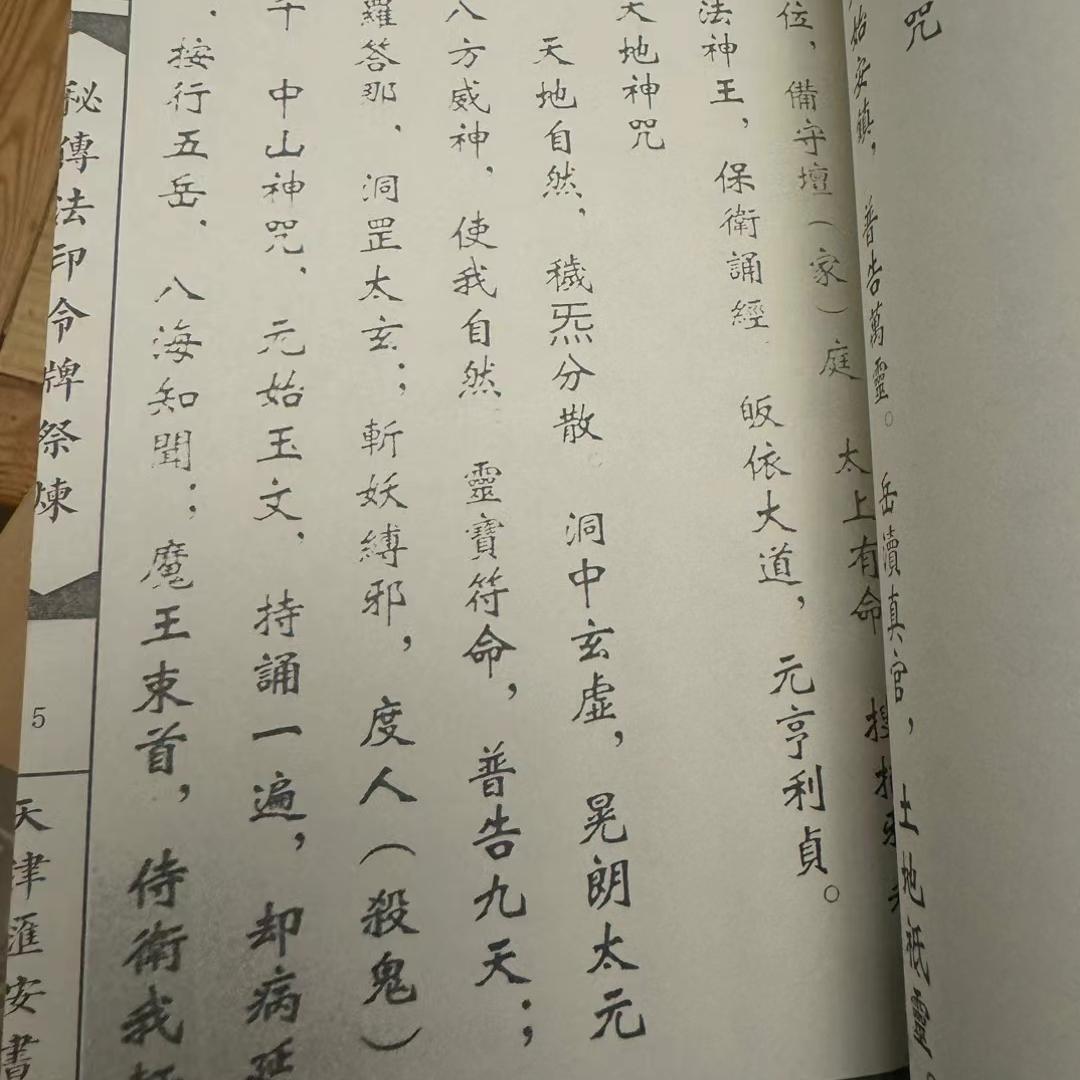 咒
始安鎮，普告萬靈。岳瀆真官，土地祇靈。
位，備守壇（家）庭 太上有命
法神王，保衛誦經 皈依大道，元亨利貞。
天地神咒
天地自然，穢炁分散。洞中玄虛，晃朗太元
八方威神，使我自然 靈寶符命，普告九天；
羅答那、洞罡太玄；斬妖縛邪，度人（殺鬼）
中山神咒、元始玉文，持誦一遍，却病延
按行五岳、八海知聞；魔王束首，侍衛我
秘傳法印令牌祭煉
5
天津滙安書